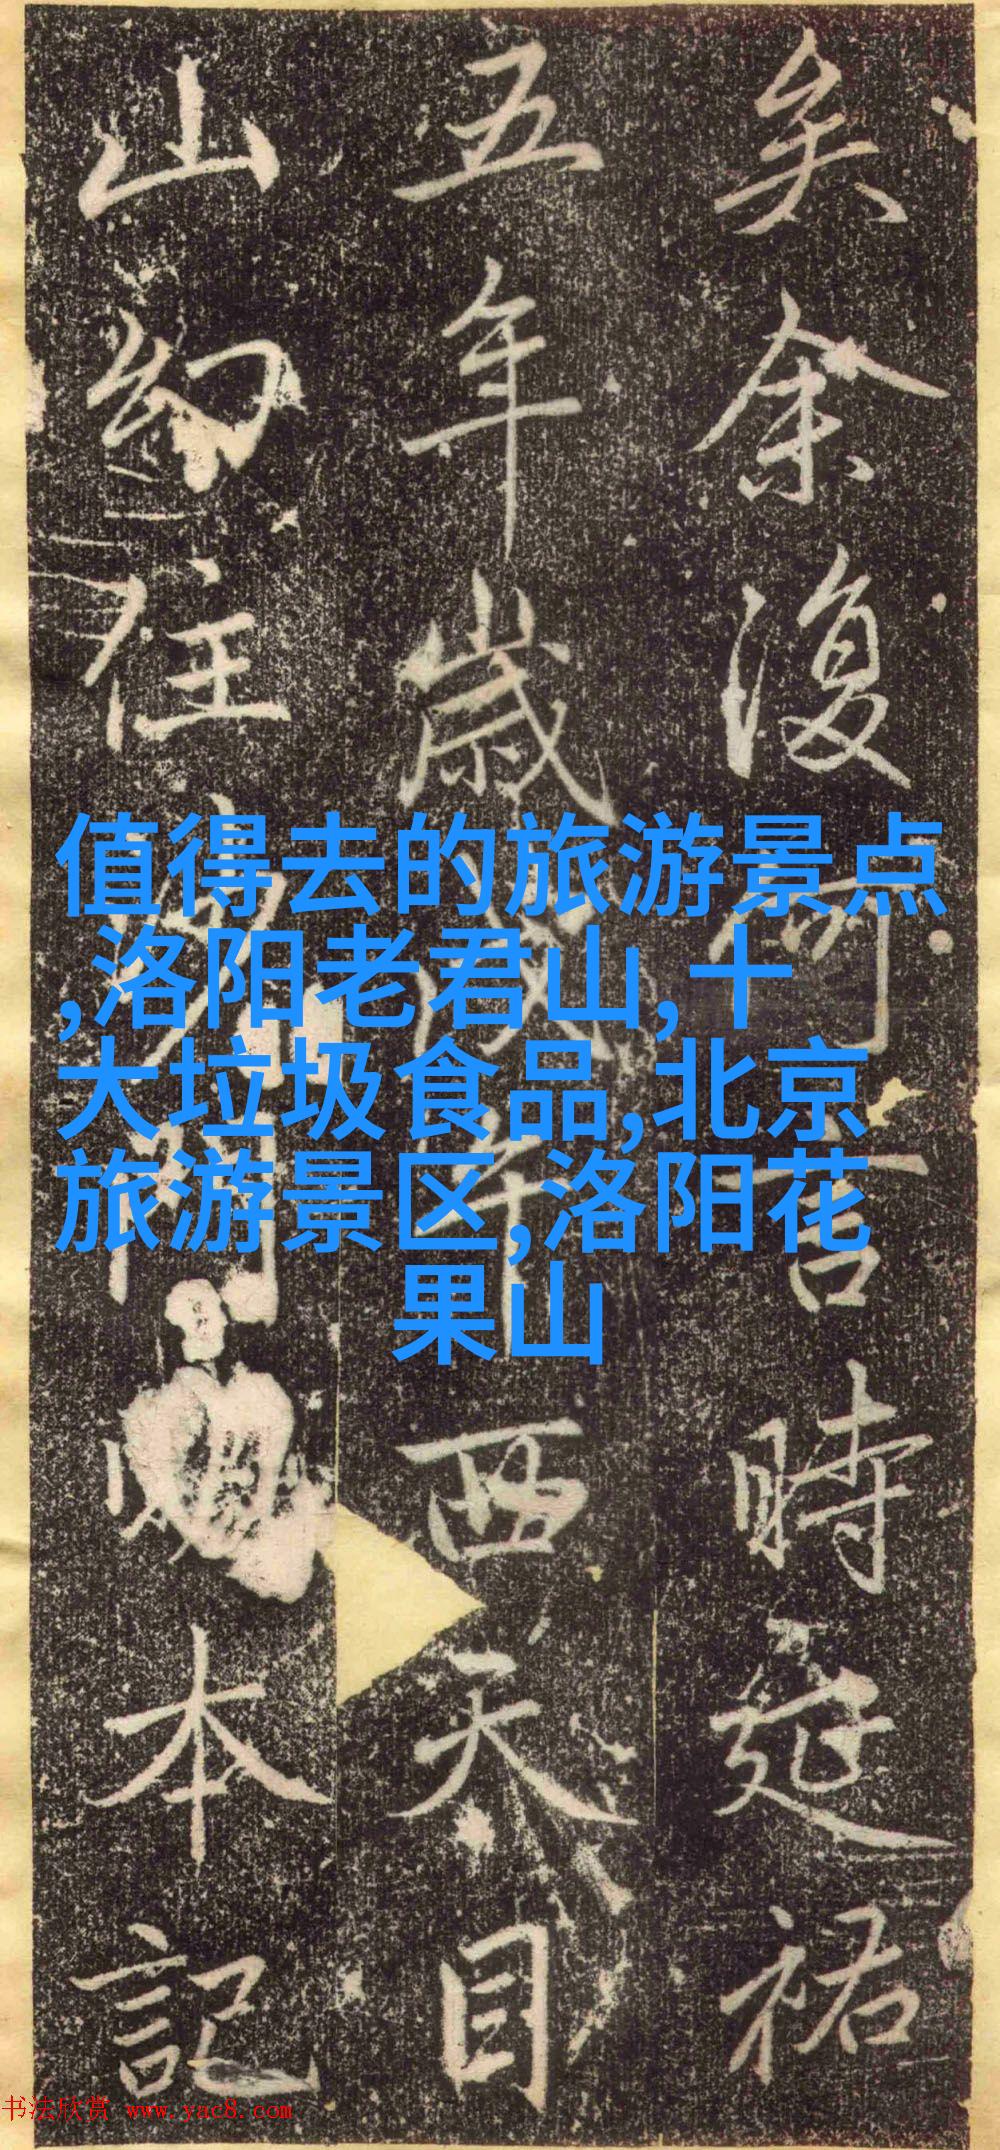 矣余復何言時延祐
五年歲戊午
西天目
山幻住
本記
值得去的旅游景点
,洛阳老君山,十
大垃圾食品,北京
旅游景区,洛阳花
果山
书法欣赏 www.yac8.com